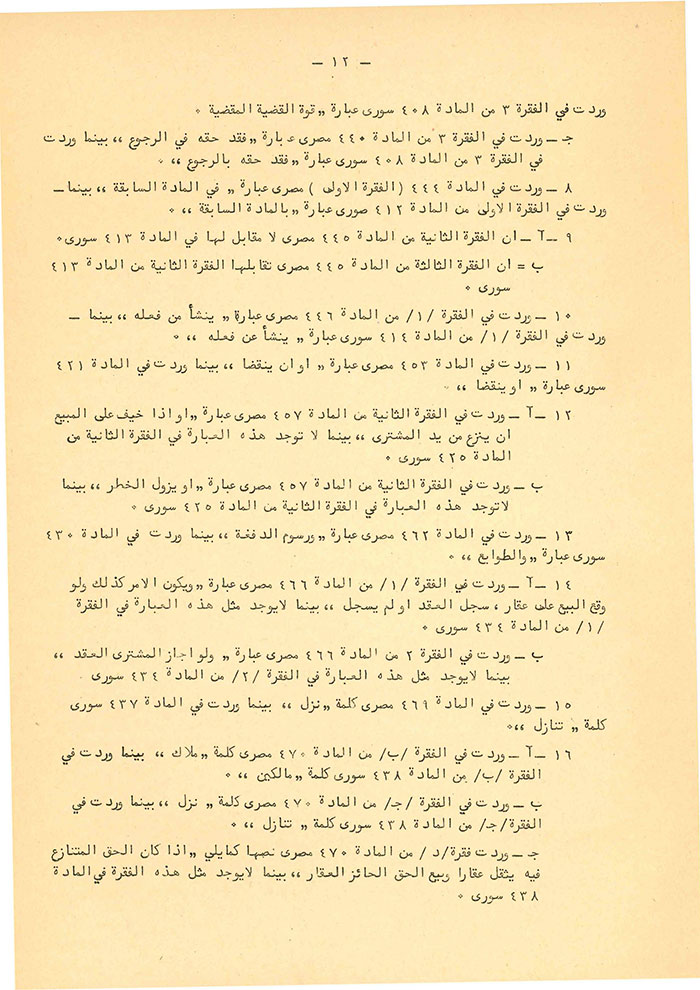 — ١٢ —
وردت في الفقرة ٣ من المادة ٤٠٨ سورى عبارة „ قوة القضية المقضية *
جـ ــ وردت في الفقرة ٣ من المادة ٤٤٠ مصرى عبارة „ فقد حقه في الرجوع ،، بينما وردت
في الفقرة ٣ من المادة ٤٠٨ سورى عبارة „ فقد حقه بالرجوع ،، *
٨ ــ وردت في المادة ٤٤٤ (الفقرة الاولى ) مصرى عبارة „ في المادة السابقة ،، بينما ــ
وردت في الفقرة الاولى من المادة ٤١٢ صورى عبارة „ بالمادة السابقة ،، *
٩ ــ آ ــ ان الفقرة الثانية من المادة ٤٤٥ مصرى لا مقابل لها في المادة ٤١٣ سورى *
ب = ان الفقرة الثالثة من المادة ٤٤٥ مصرى تقابلها الفقرة الثانية من المادة ٤١٣
سورى *
١٠ ــ وردت في الفقرة /١/ من المادة ٤٤٦ مصرى عبارة „ ينشأ من فعله ،، بينما ــ
وردت في الفقرة /١/ من المادة ٤١٤ سورى عبارة „ ينشأ عن فعله ،، *
١١ ــ وردت في المادة ٤٥٣ مصرى عبارة „ او ان ينقضا ،، بينما وردت في المادة ٤٢١
سورى عبارة „ او ينقضا ،، *
١٢ ــ آ ــ وردت في الفقرة الثانية من المادة ٤٥٧ مصرى عبارة „ او اذا خيف على المبيع
ان ينزع من يد المشترى ،، بينما لا توجد هذه العبارة في الفقرة الثانية من
المادة ٤٢٥ سورى *
ب ــ وردت في الفقرة الثانية من المادة ٤٥٧ مصرى عبارة „ او يزول الخطر ،، بينما
لاتوجد هذه العبارة في الفقرة الثانية من المادة ٤٢٥ سورى *
١٣ ــ وردت في المادة ٤٦٢ مصرى عبارة „ ورسوم الدفعة ،، بينما وردت في المادة ٤٣٠
سورى عبارة „ والطوابع ،، *
١٤ ــ آ ــ وردت في الفقرة /١/ من المادة ٤٦٦ مصرى عبارة „ ويكون الامر كذلك ولو
وقع البيع على عقار ، سجل العقد او لم يسجل ،، بينما لايوجد مثل هذه العبارة في الفقرة
/١/ من المادة ٤٣٤ سورى *
ب ــ وردت في الفقرة ٢ من المادة ٤٦٦ مصرى عبارة „ ولو اجاز المشترى العقد ،،
بينما لايوجد مثل هذه العبارة في الفقرة /٢/ من المادة ٤٣٤ سورى
١٥ ــ وردت في المادة ٤٦٩ مصرى كلمة „ نزل ،، بينما وردت في المادة ٤٣٧ سورى
كلمة „ تنازل ،، *
١٦ ــ آ ــ وردت في الفقرة /ب/ من المادة ٤٧٠ مصرى كلمة „ ملاك ،، بينما وردت في
الفقرة /ب/ من المادة ٤٣٨ سورى كلمة „ مالكين ،، *
ب ــ وردت في الفقرة /جـ/ من المادة ٤٧٠ مصرى كلمة „ نزل ،، بينما وردت في
الفقرة /جـ/ من المادة ٤٣٨ سورى كلمة „ تنازل ،، *
جـ ــ وردت فقرة /د / من المادة ٤٧٠ مصرى نصها كمايلي „ اذا كان الحق المتنازع
فيه يثقل عقارا وبيع الحق الحائز العقار ،، بينما لايوجد مثل هذه الفقرة في المادة
٤٣٨ سورى *